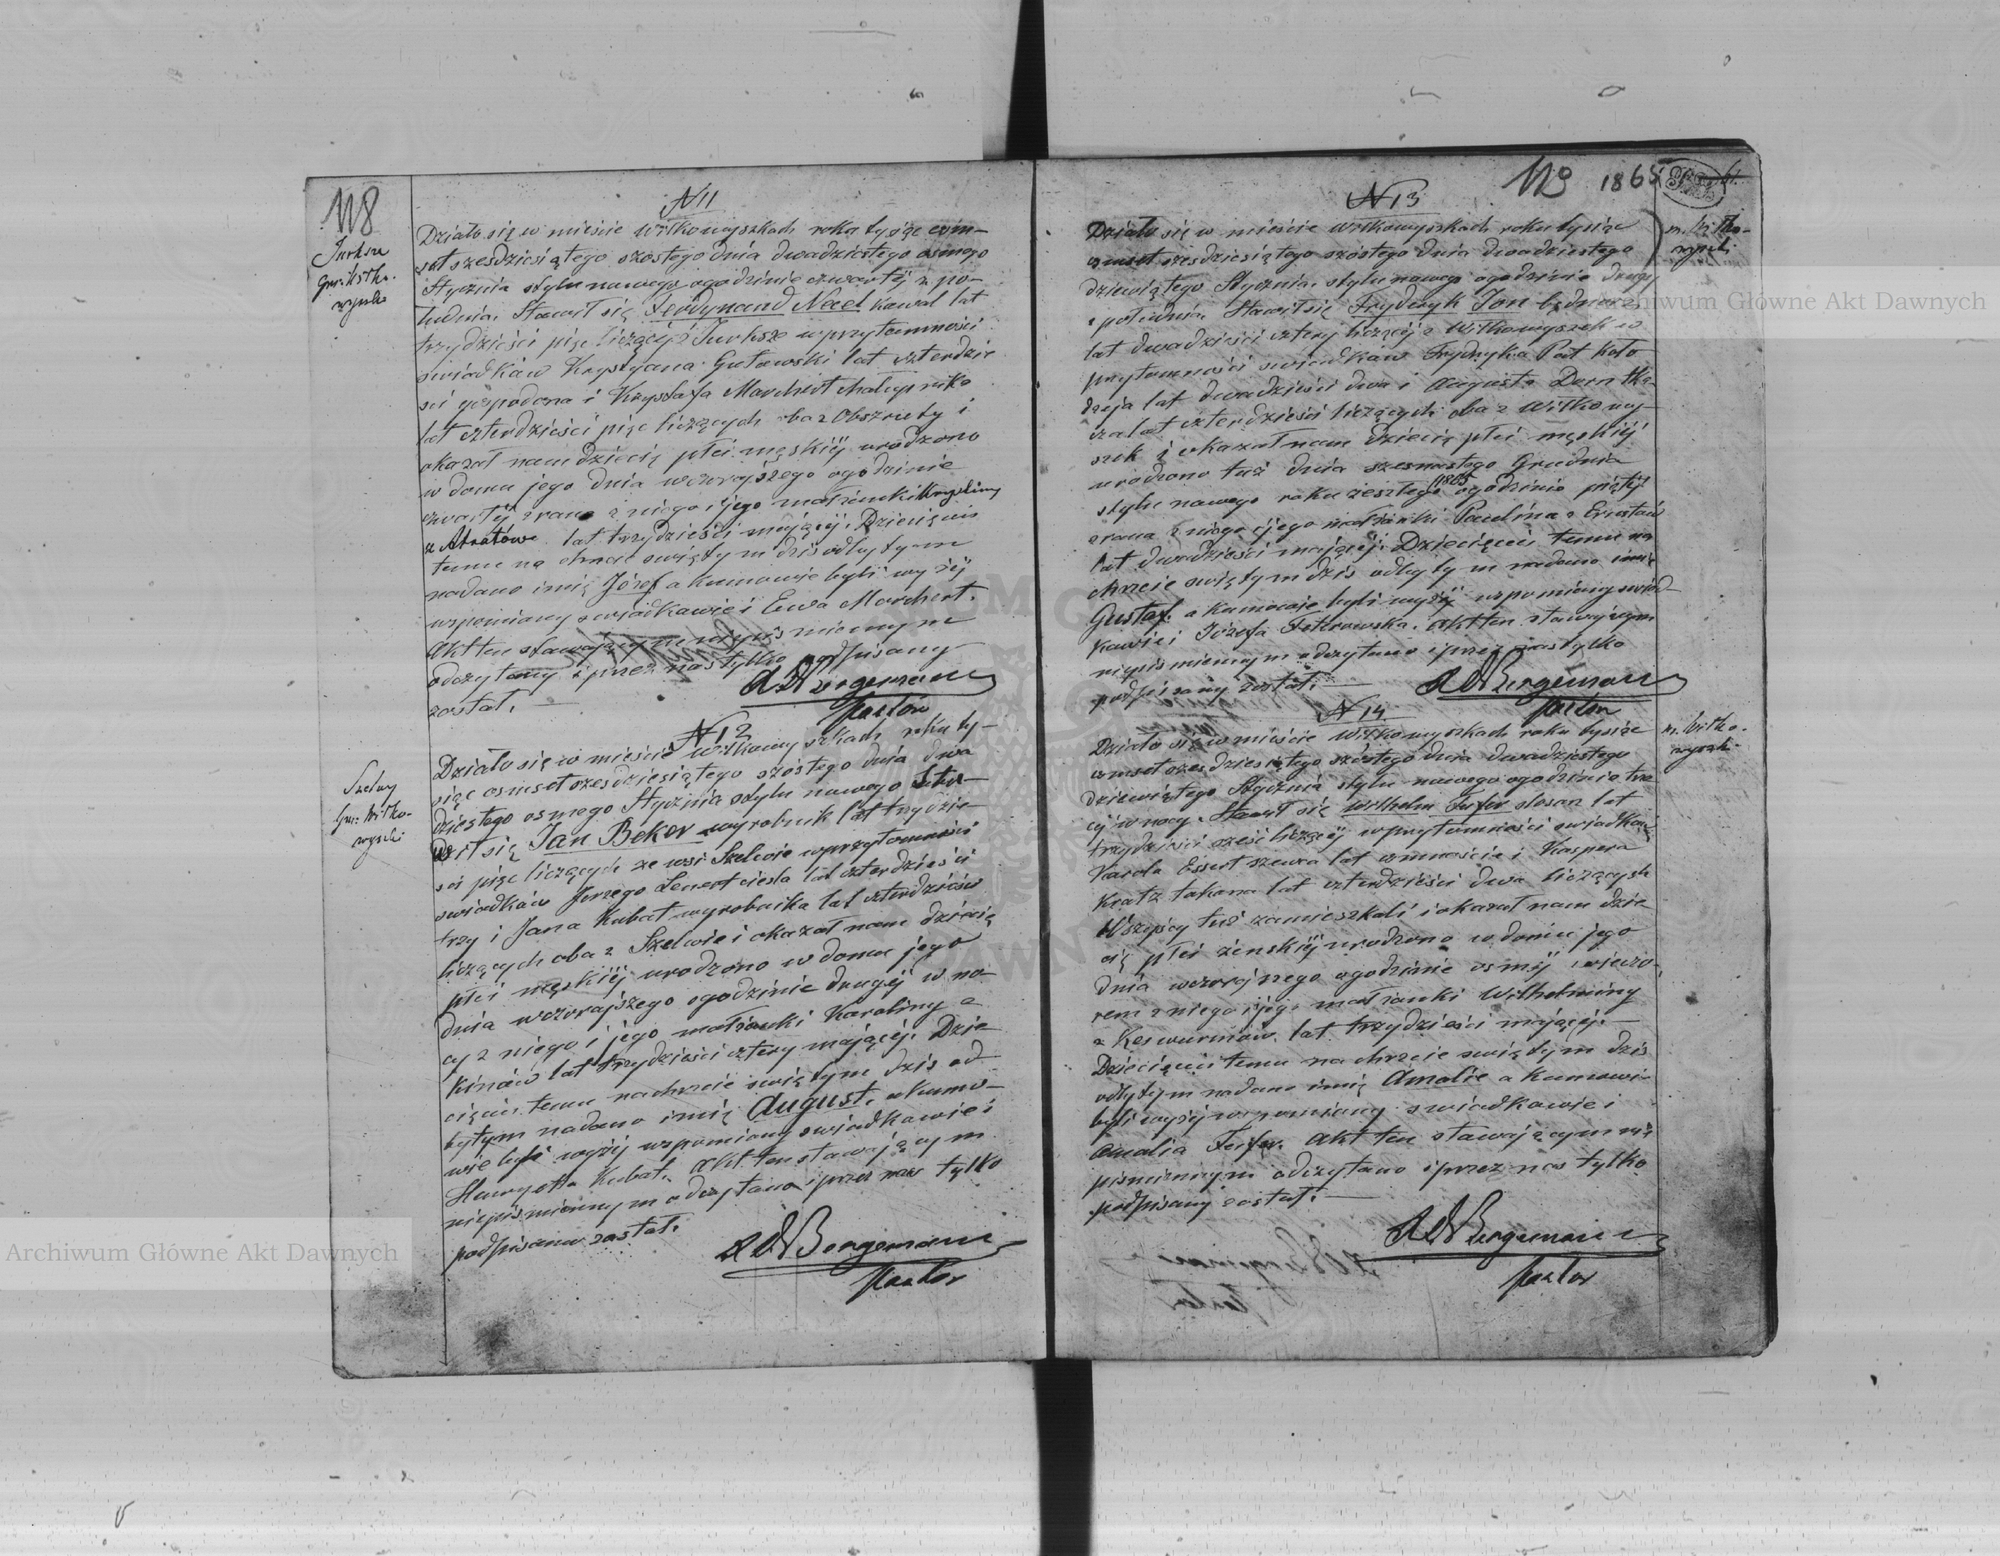 118
Jurksze
Gm: Wiłko-
wyszki
N 11
Działo się w mieście Wiłkowyszkach roku tysiąc ośm-
set sześdziesiątego szóstego dnia dwadziestego osmego
Stycznia stylu nowego ogodzinie czwartej z po-
łudnia. Stawił się Ferdynand Nael kowal lat
trzydzieści pięć liczący z Jurksze wprzytomności
świadków Krystyana Gutowski lat czterdzie
ści gospodarza i Krysztofa Marchert
lat czterdzieści pięć liczących oba z Obszruty i
okazał nam dziecię płci męskiej urodzone
w domu jego dnia wczorajszego ogodzinie
czwartej zrana z niego i jego małżonki
lat trzydzieści mającej. Dziecięciu
temu na chrzcie świętym dziś odbytym
nadano imię Józef a kumowie byli wyżej
wspomiany świadkowie i Ewa Marchert.
Akt ten stawającym niepiśmiennym
odczytany i przez nas tylko podpisany
został.
A W Bergemann
Pastor
Szelwy
Gm: Wiłko-
wyszki
N 12
Działo się w mieście Wiłkowyszkach roku ty-
siąc osmset szesdziesiątego szóstego dnia dwa
dziestego osmego Stycznia stylu nowego Sta-
wił się Jan Beker wyrobnik lat trzydzie
ści pięć liczących ze wsi Szelwie wprzytomności
świadków Jerzego Lenert ciesla lat czterdzieści
trzy i Jana Kubat wyrobnika lat czterdzieści
liczących oba z Szelwie i okazał nam dziecię
płci męskiej urodzone w domu jego
dnia wczorajszego ogodzinie drugej w no-
cy z niego i jego małżonki Karoliny z
Kinów lat trzydzieści cztery mającej. Dzie
cięciu temu na chrzcie świętym dziś od
bytym nadano imię August, a kumo-
wie byli wyżej wspomiany świadkowie i
Kubat. Akt ten stawającym
niepiśmiennym odczytano i przez nas tylko
podpisano został.
A W Bergemann
Pastor
119 1865
N 13
m. Wiłko-
wyszki
Działo się w mieście Wiłkowyszkach roku tysiąc
osmset szesdziesiątego szóstego dnia dwadziestego
dziewiątego Stycznia, stylu nowego ogodzinie drugej
z południa. Stawił się Frydryk Jon bednarz
lat dwadzieścia cztery liczący z Wiłkowyszek w
przytomności świadków Frydryka Pat koło
dzeja lat dwadzieścia dwa i Augusta Dorn tka-
cza lat czterdzieści liczących oba z Wiłkowy-
szek i okazał nam dziecię płci męskiej
urodzone tuż dnia szesnastego Grudnia
stylu nowego roku zeszłego 1865 ogodzinie piątej
zrana z niego i jego małżonki Paulina z
lat dwadzieścia mającej. Dziecięciu temu na
chrzcie świętym dziś odbytym nadano imię
Gustaf. a kumowie byli wyżej wspomiany świad-
kowie i Józefa Akt ten stawającym
niepiśmiennym odczytano i przez nas tylko
podpisany został.
A W Bergemann
Pastor
N 14
m. Wiłko-
wyszki
Działo się w mieście Wiłkowyszkach roku tysiąc
osmset szesdziesiątego szóstego dnia dwadziestego
dziewiątego Stycznia stylu nowego ogodzinie trze
cej w nocy. Stawił się Wilhelm Feifer slosarz lat
trzydzieści sześć liczący wprzytomności świadków
Karola Essert szewca lat osmnaście i Kaspera
Kratz lat czterdzieści dwa liczących
Wszyscy tuż zamieszkali i okazał nam dzie
cię płci żenskiej urodzone w domu jego
dnia wczorajszego ogodzinie osmej wieczo-
rem z niego i jego małżonki Wilhelminy
z lat trzydzieści mającej.
Dziecięciu temu na chrzcie świętym dziś
odbytym nadano imię Amalie a kumowie
byli wyżej wspomiany świadkowie i
Amalia Feifer. Akt ten stawającym nie
piśmiennym odczytano i przez nas tylko
podpisany został.
A W Bergemann
Pastor
Archiwum Główne Akt Dawnych
Archiwum Główne Akt Dawnych